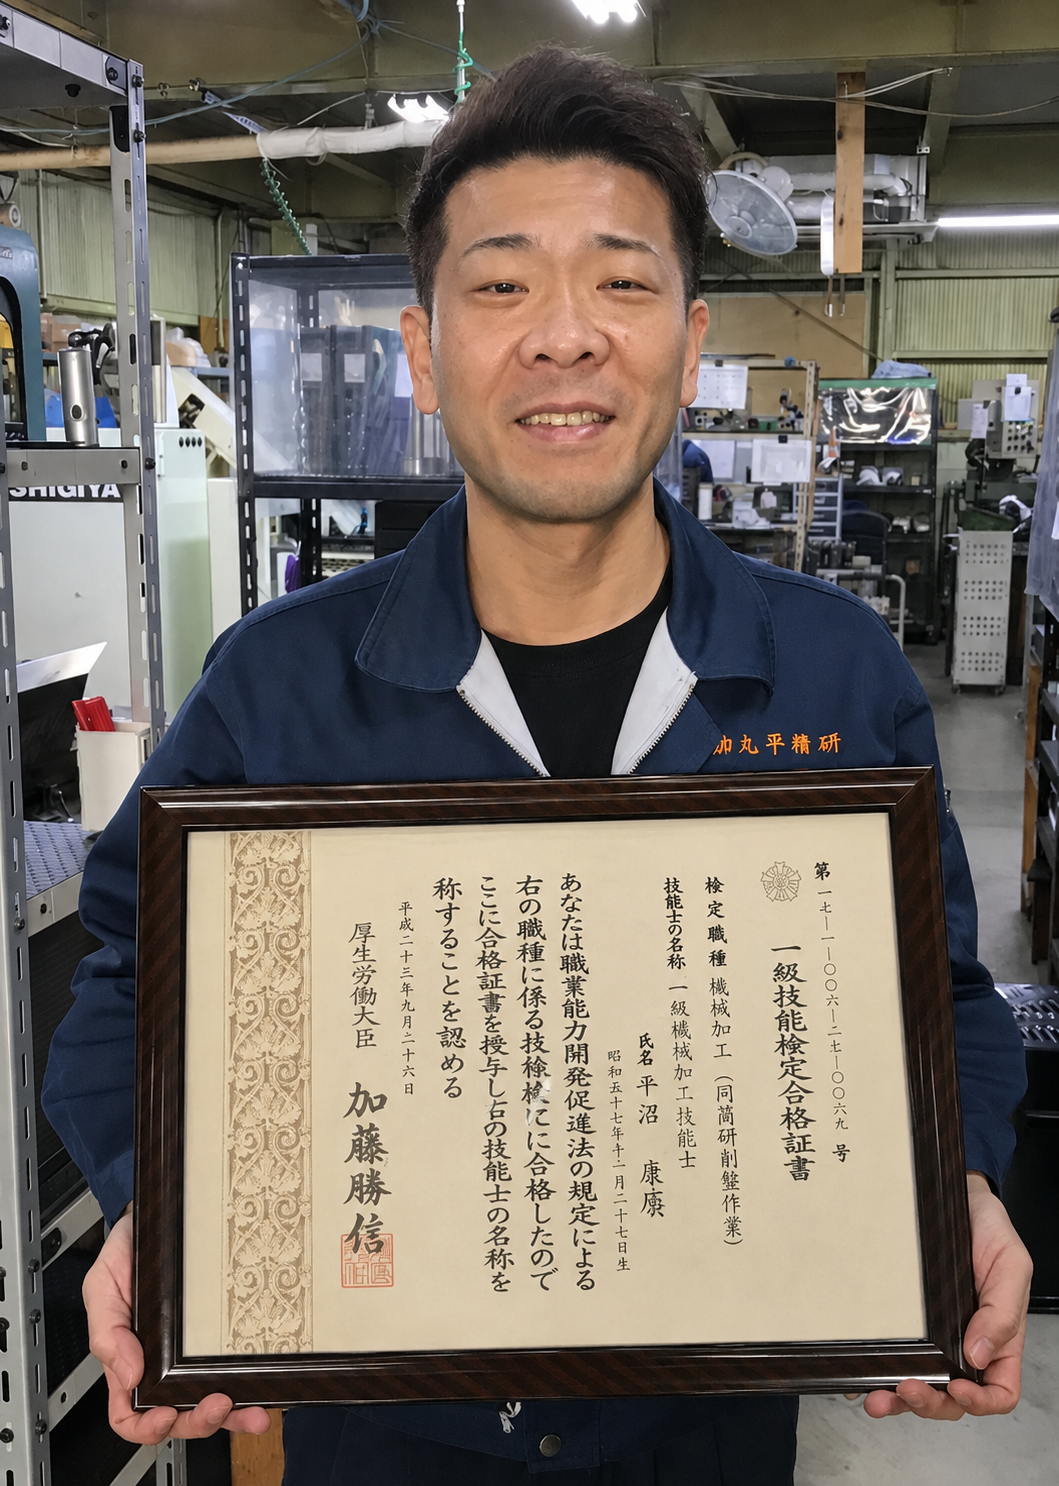 SHIGIYA
加丸平精研
第一七―一―〇〇六―二七―〇〇六九号
一級技能検定合格証書
検定職種 機械加工（同筒研削盤作業）
技能士の名称 一級機械加工技能士
氏名 平沼 康
昭和五十七年十二月二十七日生
あなたは職業能力開発促進法の規定による
右の職種に係る技検検にに合格したので
ここに合格証書を授与し右の技能士の名称を
称することを認める
平成二十三年九月二十六日
厚生労働大臣 加藤勝信